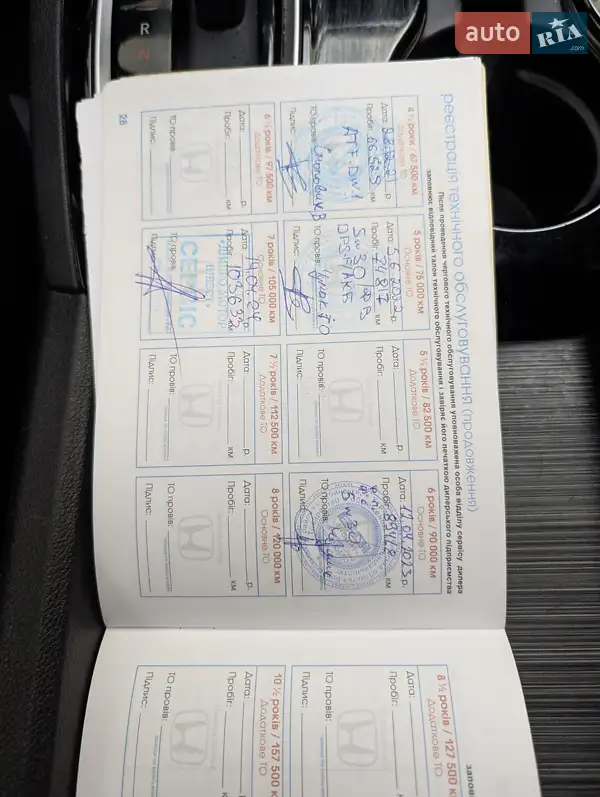 auto RIA .com
R
N
реєстрація технічного обслуговування (продовження)
Після проведення чергового технічного обслуговування уповноважена особа відділу сервісу дилера
заповнює відповідний талон технічного обслуговування і завіряє його печаткою дилерського підприємства
4 ½ роки / 67 500 км
Додаткове ТО
Дата: р.
Пробіг: 66529 км
ATF-DW1
ТО провів:
Підпис:
5 років / 75 000 км
Основне ТО
Дата: 5.5.2022 р.
Пробіг: 74817 км
5w30, ФВ
ТО провів:
Підпис:
5 ½ років / 82 500 км
Додаткове ТО
Дата: р.
Пробіг: км
ТО провів:
Підпис:
6 років / 90 000 км
Основне ТО
Дата: 11.04.2023 р.
Пробіг: км
5w30
ТО провів:
Підпис:
6 ½ років / 97 500 км
Додаткове ТО
Дата: р.
Пробіг: км
ТО провів:
Підпис:
7 років / 105 000 км
Основне ТО
Дата: р.
Пробіг: км
СЕРВІС
ТО провів:
Підпис:
7 ½ років / 112 500 км
Додаткове ТО
Дата: р.
Пробіг: км
ТО провів:
Підпис:
8 років / 120 000 км
Основне ТО
Дата: р.
Пробіг: км
ТО провів:
Підпис:
26
8 ½ років / 127 500
Додаткове ТО
Дата:
Пробіг:
ТО провів:
Підпис:
10 ½ років / 157 500
Додаткове ТО
Дата:
Пробіг:
ТО провів:
Підпис: